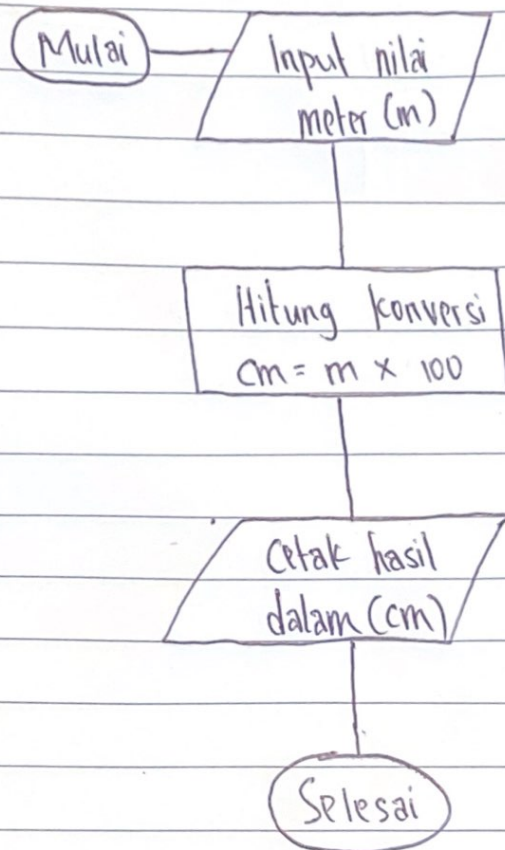 Mulai
Input nilai
meter (m)
Hitung konversi
cm = m × 100
Cetak hasil
dalam (cm)
Selesai